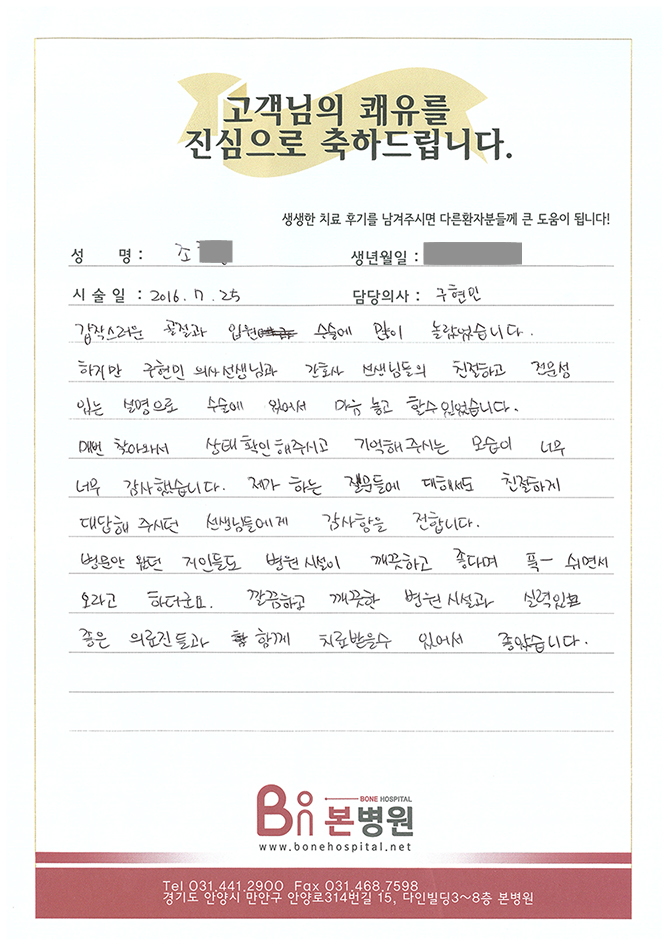 고객님의 쾌유를
진심으로 축하드립니다.
생생한 치료 후기를 남겨주시면 다른환자분들께 큰 도움이 됩니다!
성 명 : 조 생년월일 :
시 술 일 : 2016. 7. 25 담당의사 : 구현민
갑작스러운 골절과 입원 수술에 많이 놀랐었습니다.
하지만 구현민 의사선생님과 간호사 선생님들의 친절하고 전문성
있는 설명으로 수술에 있어서 마음 놓고 할수있었습니다.
매번 찾아와서 상태 확인해주시고 기억해 주시는 모습이 너무
너무 감사했습니다. 제가 하는 질문들에 대해서도 친절하게
대답해 주시던 선생님들에게 감사함을 전합니다.
병문안 왔던 지인들도 병원 시설이 깨끗하고 좋다며 푹- 쉬면서
오라고 하더군요. 깔끔하고 깨끗한 병원 시설과 실력있고
좋은 의료진들과 함께 치료받을수 있어서 좋았습니다.
BONE HOSPITAL
Bon 본병원
www.bonehospital.net
Tel 031.441.2900 Fax 031.468.7598
경기도 안양시 만안구 안양로314번길 15, 다인빌딩3~8층 본병원